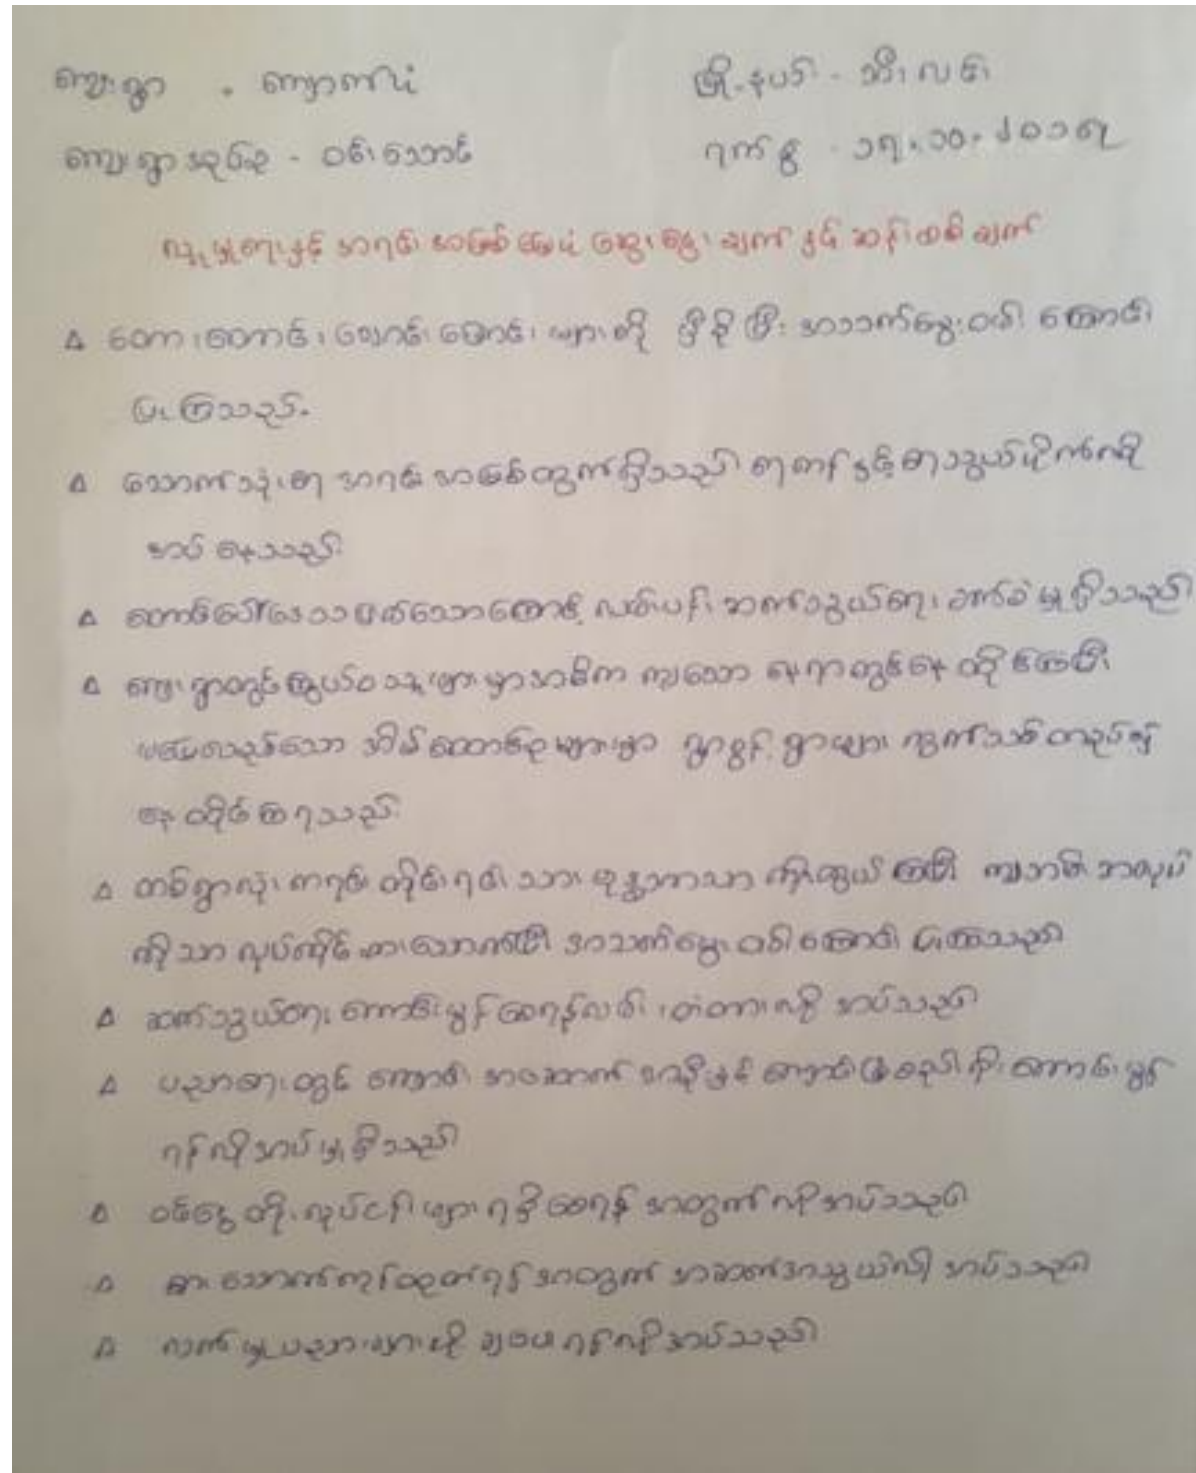 ကျေးရွာ - ကျောက်ပုံ မြို့နယ် - သီးလင်း
ကျေးရွာအုပ်စု - ဝင်းသောင် ရက်စွဲ - ၁၅.၁၀.၂၀၁၅
လူမှုရေးနှင့် အရင်းအမြစ်မြေပုံ ဆွေးနွေးချက်နှင့် ဆန်းစစ်ချက်
တော၊တောင်၊ ချောင်းမြောင်း များကို မှီခိုပြီး အသက်မွေးဝမ်းကြောင်း
ပြုကြသည်။
သောက်သုံးရေ အရင်းအမြစ်ထွက်ရှိသည် ရေကန်နှင့်ရေသွယ်ပိုက်လို
အပ်နေသည်
တောင်ပေါ်ဒေသဖြစ်သောကြောင့် လမ်းပန်းဆက်သွယ်ရေး ခက်ခဲမှုရှိသည်
ကျေးရွာတွင်ကြွယ်ဝသူများမှာအဓိက ကျသော နေရာတွင်နေထိုင်ကြပြီး
မပြေလည်သော အိမ်ထောင်စုများမှာ ရွာစွန် ရွာဖျား ကွက်သစ်တည်၍
နေထိုင်ကြရသည်
တစ်ရွာလုံး ကရင်တိုင်းရင်းသား ဗုဒ္ဓဘာသာ ကိုးကွယ်ကြပြီး ကျဘမ်းအလုပ်
ကိုသာ လုပ်ကိုင်စားသောက်ပြီး အသက်မွေးဝမ်းကြောင်း ပြုကြသည်
ဆက်သွယ်ရေး ကောင်းမွန်စေရန်လမ်း၊တံတားလို အပ်သည်
ပညာရေးတွင် ကျောင်း အဆောက် အဦနှင့် ကျောင်းခြံစည်းရိုး ကောင်းမွန်
ရန်လိုအပ်မှုရှိသည်
ဝင်ငွေတိုးလုပ်ငန်းများ ရရှိစေရန် အတွက်လိုအပ်သည်
စားသောက်ကုန်ထုတ်ရန်အတွက် အဆက်အသွယ်လို အပ်သည်
လက်မှုပညာများကို ချမပေးရန်လိုအပ်သည်